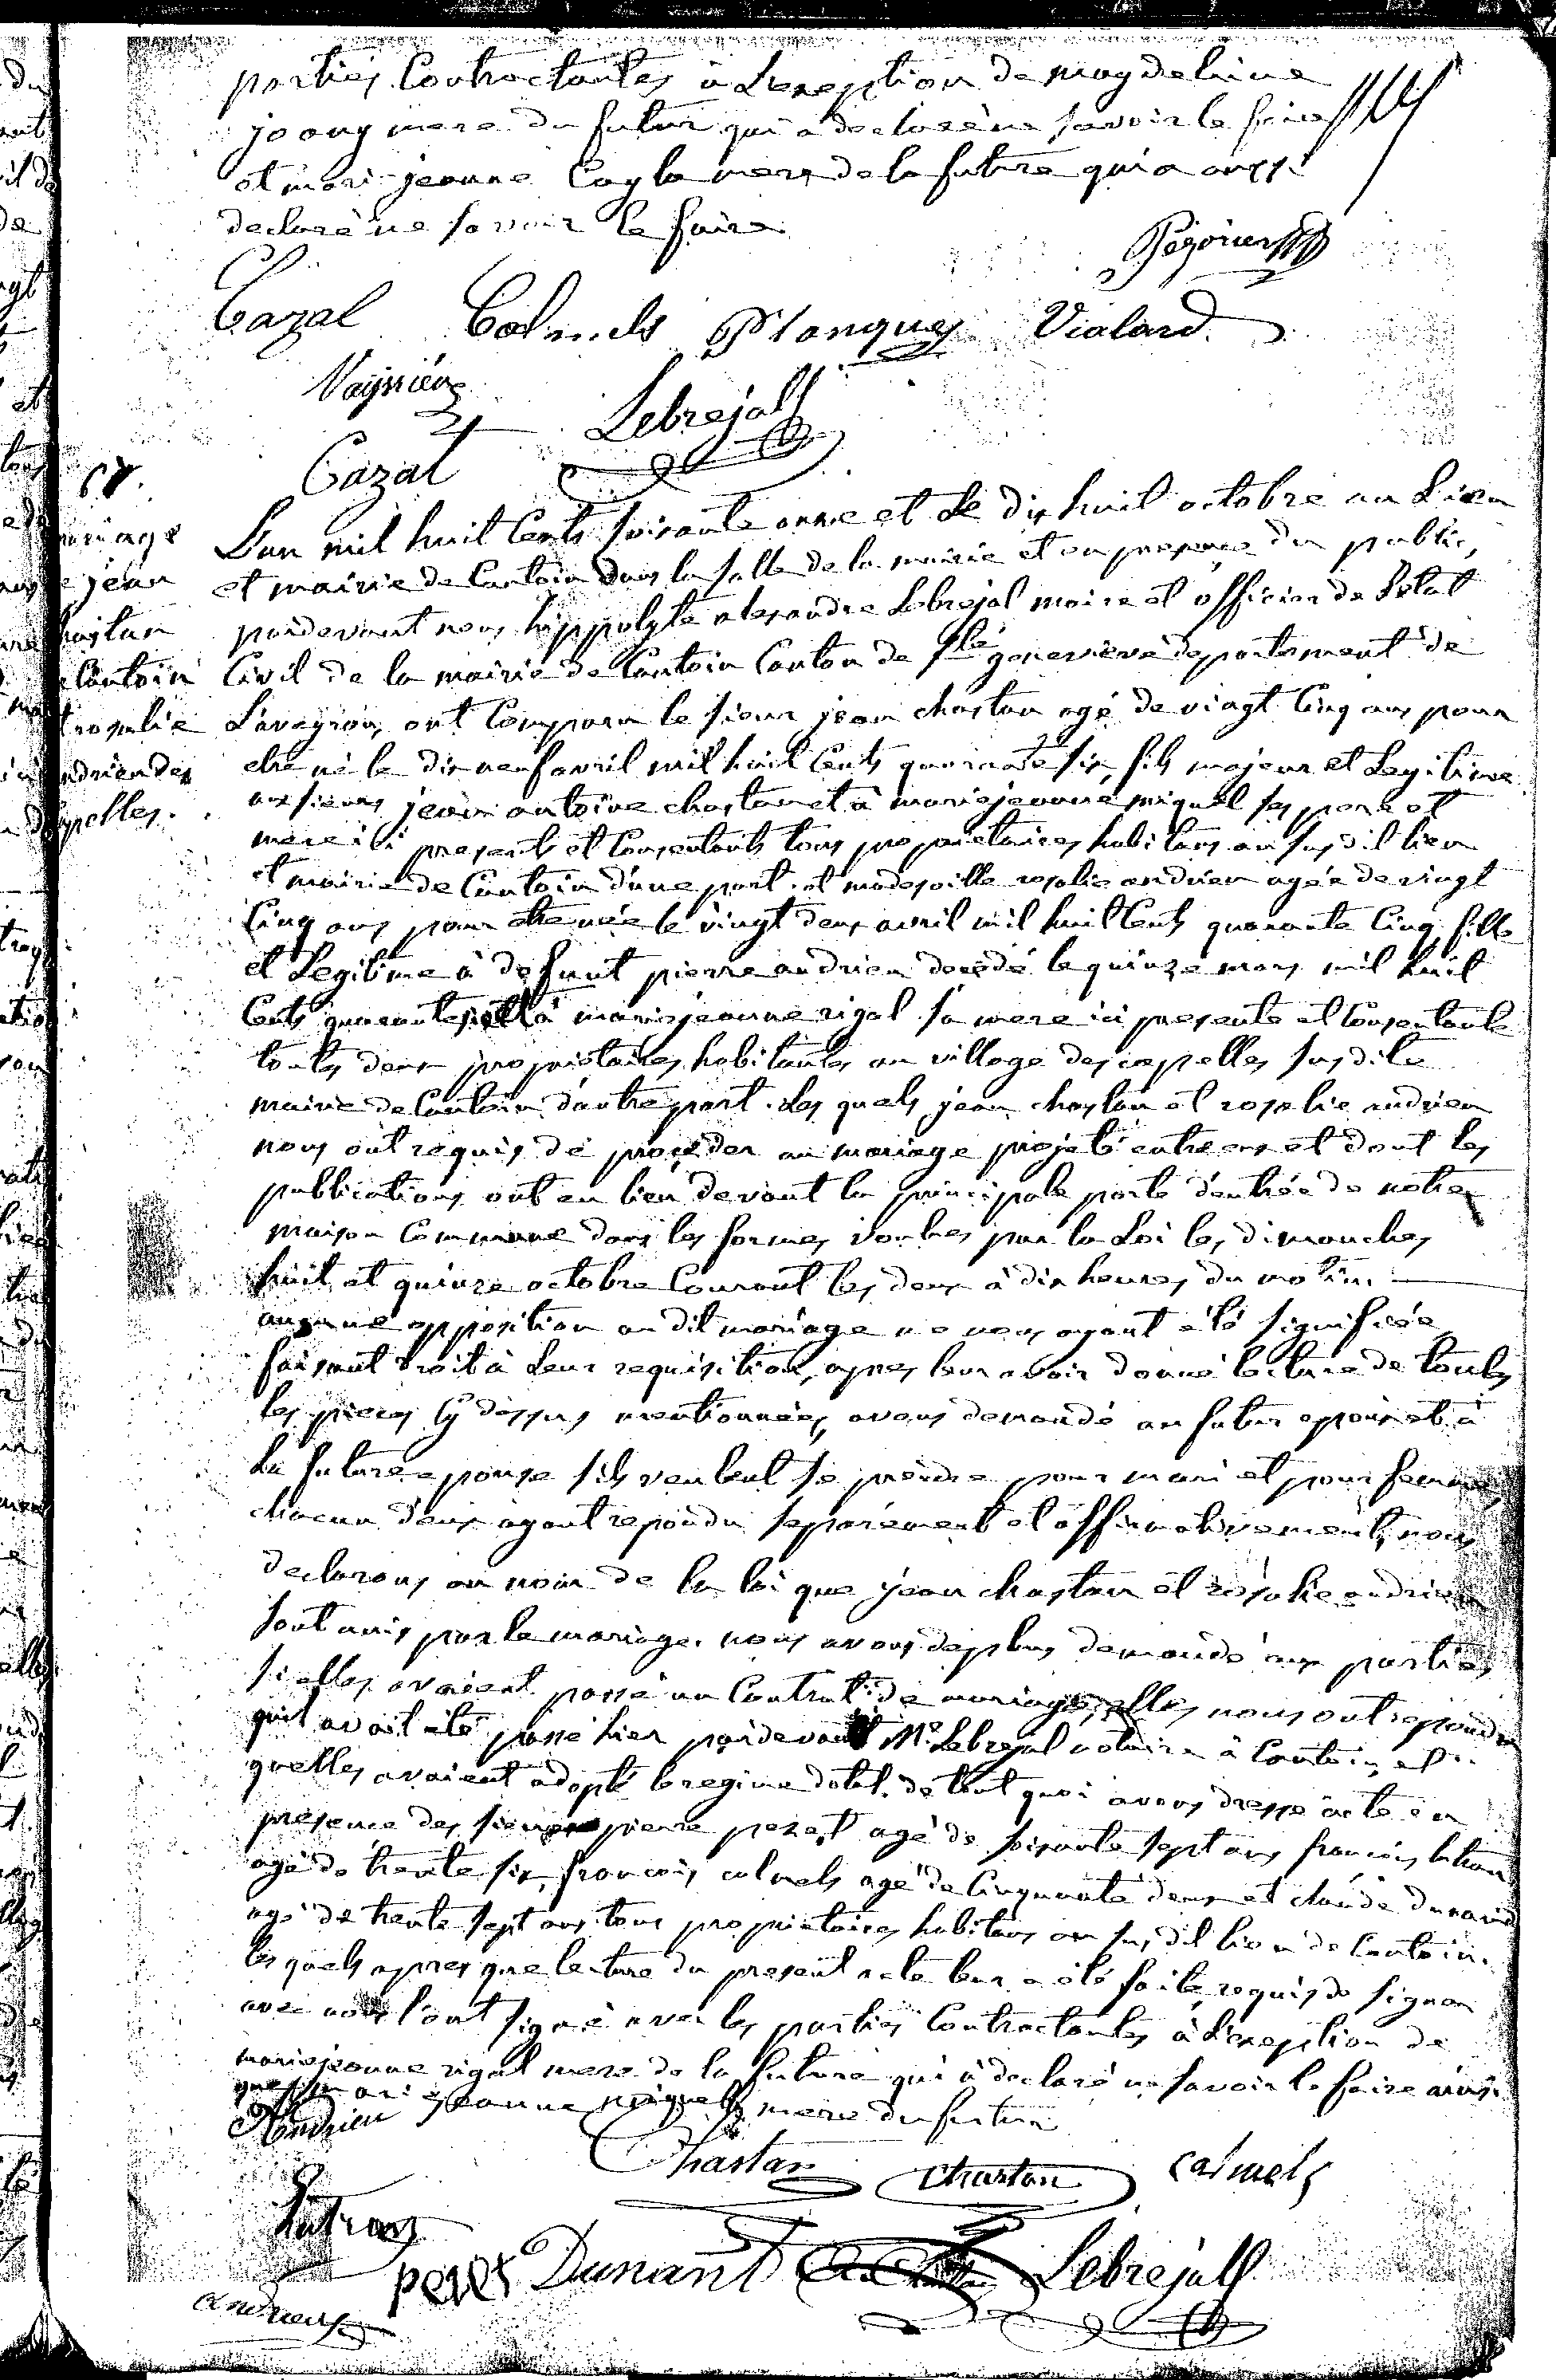 parties Contractantes à L'exeption de magdeleine
joany mere du futur qui a declaré ne savoir le faire
et mari jeanne Cayla mere de la future qui a aussi
declaré ne savoir le faire
Pégorier
Cazal Calmels Planques Vialard
Vayssière
Lebrejal
Cazal
mariage
de jean
chastan
de Cantoin
et rosalie
andrieu des
capelles.
L'an mil huit Cents soixante onze et le dix huit octobre au Lieu
et mairie de Cantoin dans la salle de la mairie et en presence du public,
pardevant nous hippolyte alexandre Lebrejal maire et officier de L'etat
Civil de la mairie de Cantoin Canton de Ste genevieve departement de
L'aveyron, ont Comparu le sieur jean chastan agé de vingt Cinq ans pour
etre né le dix neuf avril mil huit Cents quarante six, fils majeur et Legitime
aux sieurs jean antoine chastan et à marie jeanne miquel ses pere et
mere ici presents et Consentants tous proprietaires habitans au susdit lieu
et mairie de Cantoin d'une part. et madesoille rosalie andrieu agée de vingt
Cinq ans pour etre née le vingt deux avril mil huit Cents quarante Cinq, fille
et Legitime à defunt pierre andrieu decedé le quinze mars mil huit
Cents quarante sept à marie jeanne rigal sa mere ici presente et Consentante
toutes deux proprietaires habitantes au village des capelles susdite
mairie de Cantoin d'autre part. Les quels jean chastan et rosalie andrieu
nous ont requis de proceder au mariage projeté entre eux et dont les
publications ont eu lieu devant la principale porte d'entrée de notre
maison Commune dans les formes voulues par la Loi les dimanches
huit et quinze octobre Courant les deux à dix heures du matin.
aucune opposition au dit mariage ne nous ayant été signifiée
faisant droit à Leur requisition, apres leur avoir donné lecture de toutes
les pieces cy dessus mentionnées, avons demandé au futur epoux et à
La future epouse s'ils veulent se prendre pour mari et pour femme,
chacun d'eux ayant repondu separement et affirmativement, nous
declarons au nom de la loi que jean chastan et rosalie andrieu
sont unis par le mariage. nous avons de plus demandé aux parties
si elles avaient passé un Contrat de mariage, elles nous ont repondu
qu'il avait été passé hier pardevant Me Lebrejal notaire à Cantoin, et
quelles avaient adopté le regime dotal. de tout quoi avons dressé acte en
presence des sieurs pierre pezet agé de soixante sept ans francois latran
agé de trente six, francois calmels agé de Cinquante deux et claude dunand
agé de trente sept ans tous proprietaires habitans au susdit lieu de Cantoin.
les quels apres que lecture du present acte leur a été faite, requis de signer
avec nous l'ont signé avec les parties Contractantes à L'exeption de
marie jeanne rigal mere de la future qui a declaré ne savoir le faire ainsi
que mari jeanne miquel mere du futur
Andrieu
Chastan chastan calmels
Latran
pezet Dunant Lebrejal
andrieu